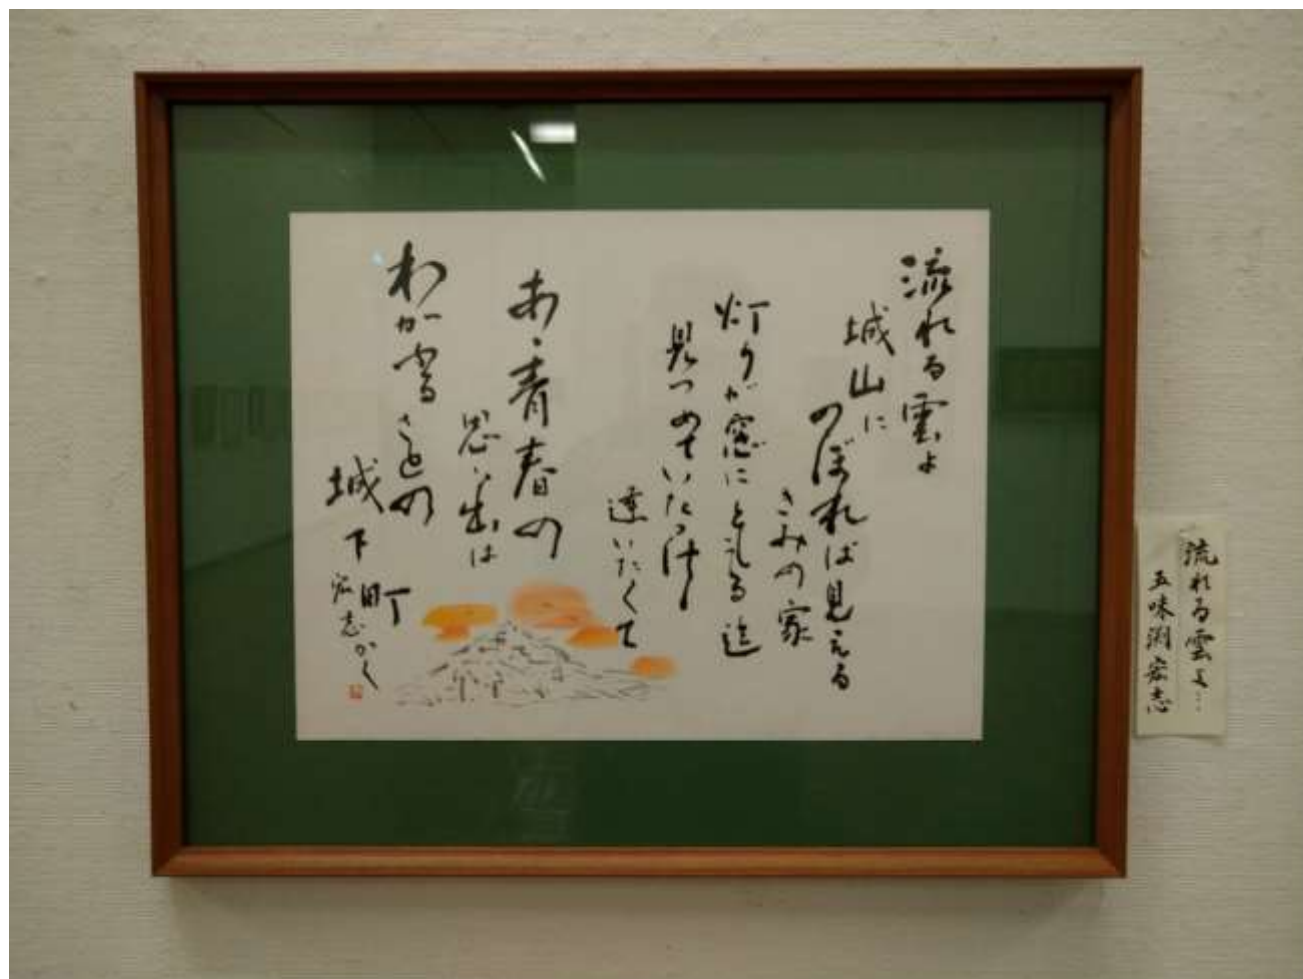 流れる雲よ
城山に
のぼれば見える
きみの家
灯りが窓にともる迄
見つめていたっけ
逢いたくて
あゝ青春の
思い出は
わが
さとの
城下町
宏志かく
流れる雲よ…
五味渕宏志